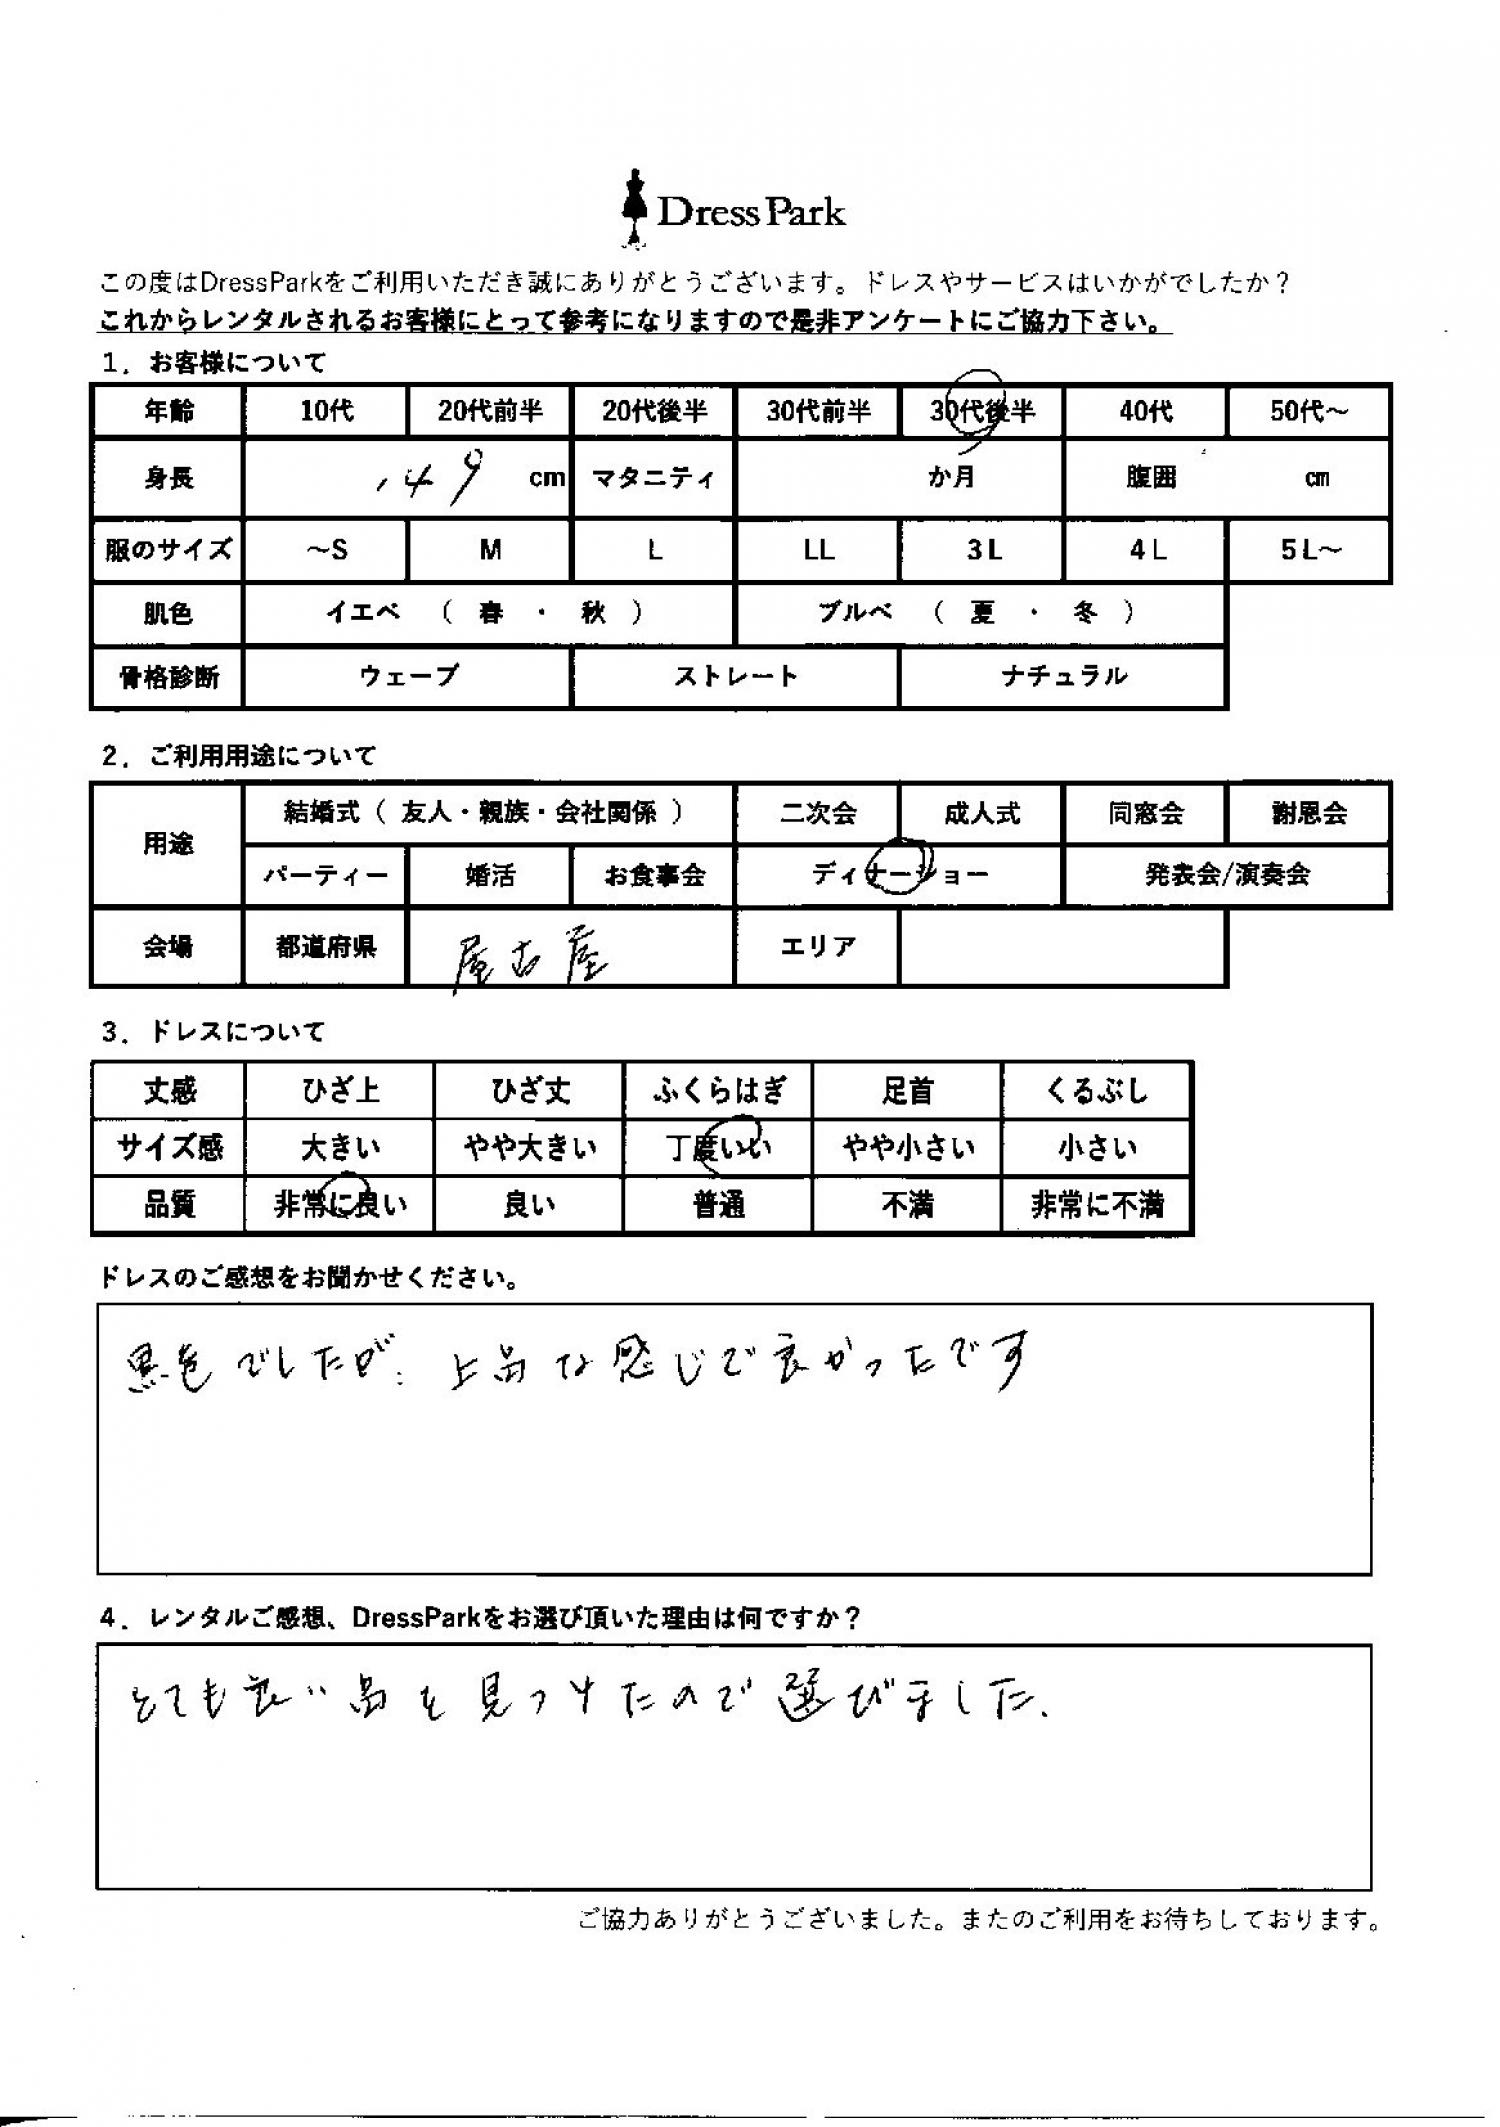 Dress Park
この度はDressParkをご利用いただき誠にありがとうございます。ドレスやサービスはいかがでしたか？
これからレンタルされるお客様にとって参考になりますので是非アンケートにご協力下さい。
1．お客様について
年齢 10代 20代前半 20代後半 30代前半 30代後半 40代 50代～
身長 149 cm マタニティ か月 腹囲 cm
服のサイズ ～S M L LL 3L 4L 5L～
肌色 イエベ（ 春 ・ 秋 ） ブルベ（ 夏 ・ 冬 ）
骨格診断 ウェーブ ストレート ナチュラル
2．ご利用用途について
用途 結婚式（ 友人・親族・会社関係 ） 二次会 成人式 同窓会 謝恩会
パーティー 婚活 お食事会 ディナーショー 発表会/演奏会
会場 都道府県 屋古屋 エリア
3．ドレスについて
丈感 ひざ上 ひざ丈 ふくらはぎ 足首 くるぶし
サイズ感 大きい やや大きい 丁度いい やや小さい 小さい
品質 非常に良い 良い 普通 不満 非常に不満
ドレスのご感想をお聞かせください。
黒色でしたが、上品な感じで良かったです
4．レンタルご感想、DressParkをお選び頂いた理由は何ですか？
とても良い品を見つけたので選びました.
ご協力ありがとうございました。またのご利用をお待ちしております。